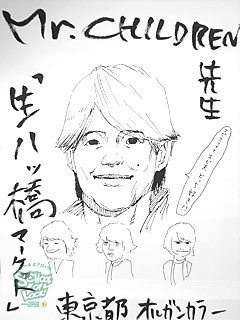 Mr. CHILDREN
先生
「生八ッ橋マーケット」
東京都 オルガンカラー